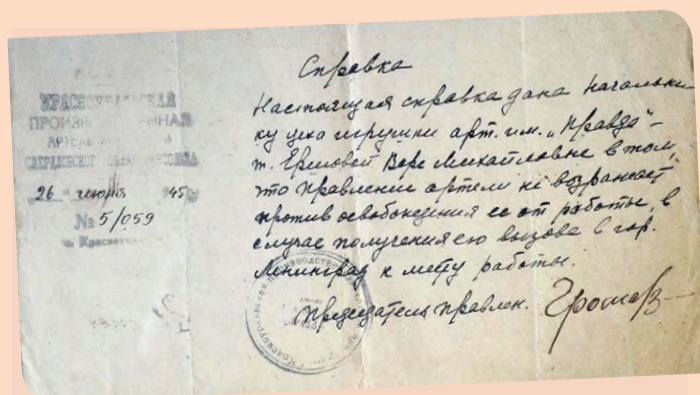 КРАСНОУРАЛЬСКАЯ
ПРОИЗВОДСТВЕННАЯ
СВЕРДЛОВСКОГО
26 июня 1945
№ 5/059
Справка
Настоящая справка дана начальни
ку цеха игрушки арт. им. „Правда" –
т. Ершовой Вере Михайловне в том,
что правление артели не возражает
против освобождения ее от работы, в
случае получения ею вызова в гор.
Ленинград к месту работы.
Председатель правлен.